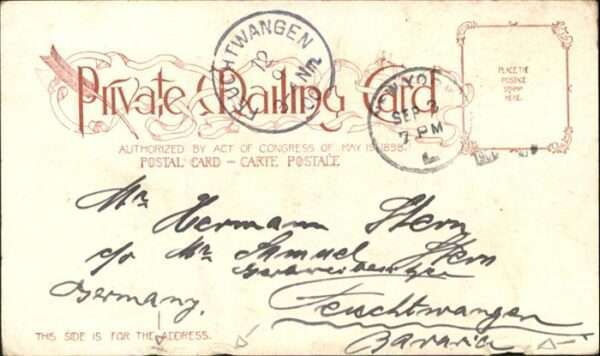 FEUCHTWANGEN
12
9
NM
Private Mailing Card
SEP 3
7 PM
PLACE THE
POSTAGE
STAMP
HERE.
AUTHORIZED BY ACT OF CONGRESS OF MAY 19, 1898.
POSTAL CARD – CARTE POSTALE
Mr Hermann Stern
c/o Mr. Samuel Stern
Germany.
Feuchtwangen
Bavaria
THIS SIDE IS FOR THE ADDRESS.